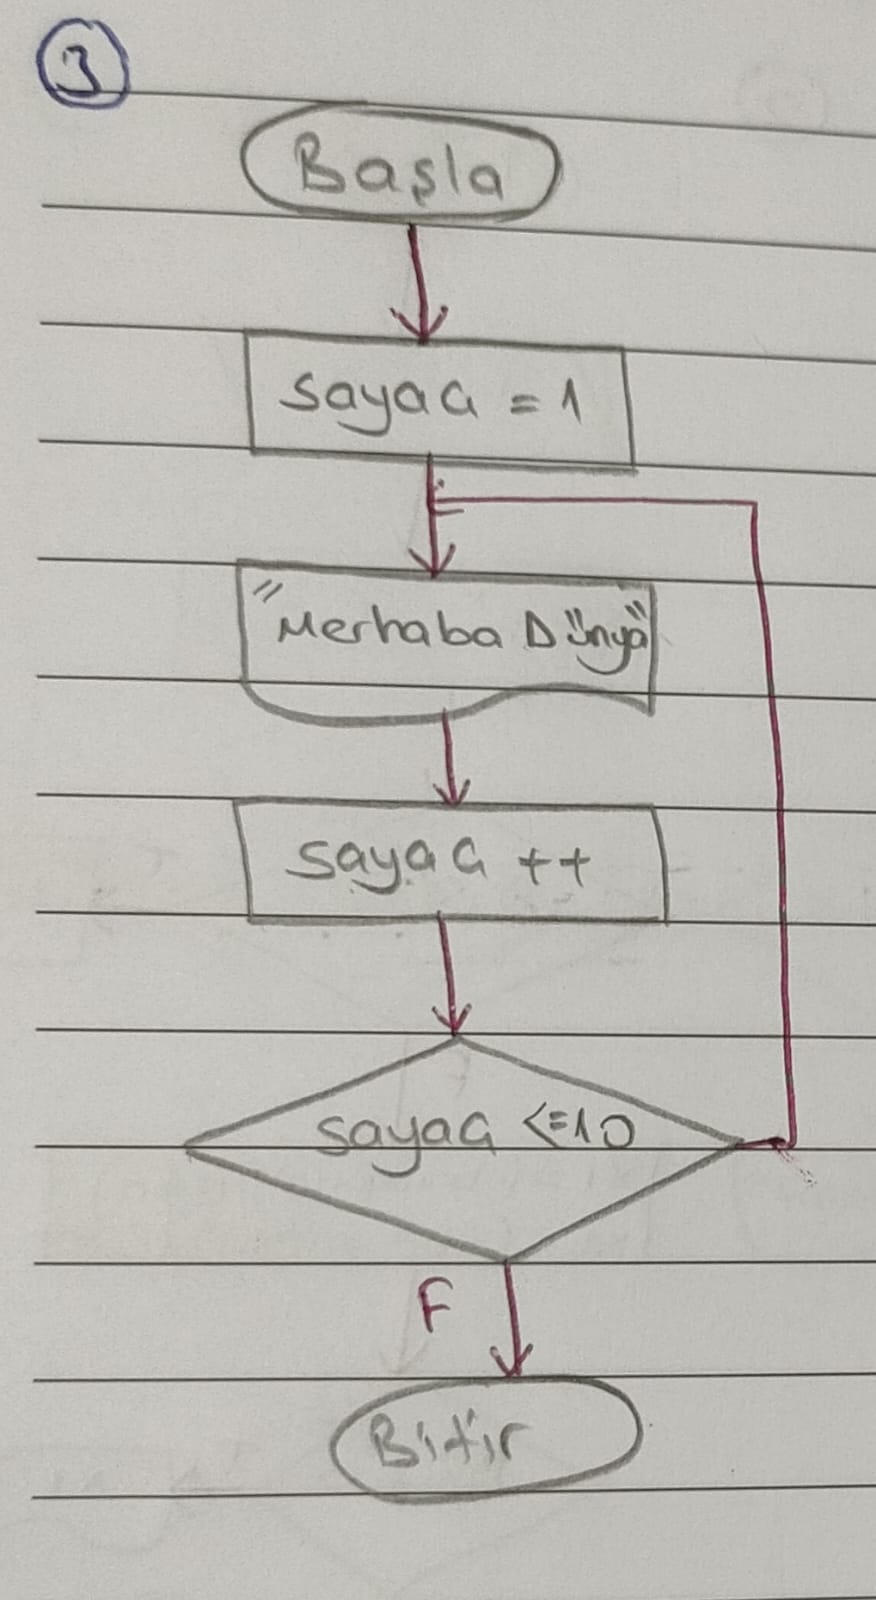 3
Başla
Sayaç = 1
"Merhaba Dünya"
Sayaç ++
Sayaç <=10
F
Bitir